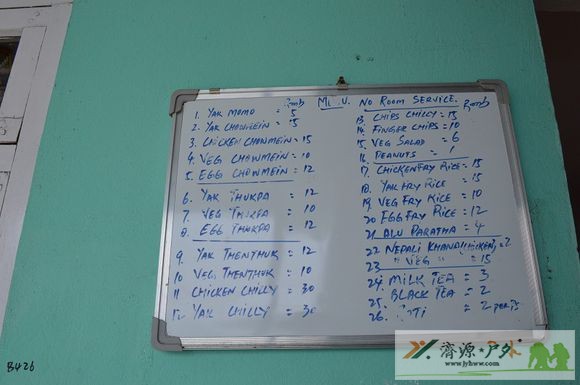 Rmb
MENU.
NO ROOM SERVICE.
Rmb
1. YAK MOMO = 5
2. YAK CHOWMEIN = 15
3. CHICKEN CHOWMEIN = 15
4. VEG CHOWMEIN = 10
5. EGG CHOWMEIN = 12
6. YAK THUKPA = 12
7. VEG THUKPA = 10
8. EGG THUKPA = 12
9. YAK THENTHUK = 12
10 VEG THENTHUK = 10
11 CHICKEN CHILLY = 30
12 YAK CHILLY = 30
13. CHIPS CHILLY = 15
14. FINGER CHIPS = 10
15. VEG SALAD = 6
16. PEANUTS =
17. CHICKEN FRY RICE = 15
18. YAK FRY RICE = 15
19. VEG FRY RICE = 10
20 EGG FRY RICE = 12
21. ALU PARATHA = 4
22. NEPALI KHANA (CHICKEN) =
23 " VEG " = 15
24. MILK TEA = 3
25. BLACK TEA = 2
26. = 2
B426
济源·户外
www.jyhww.com